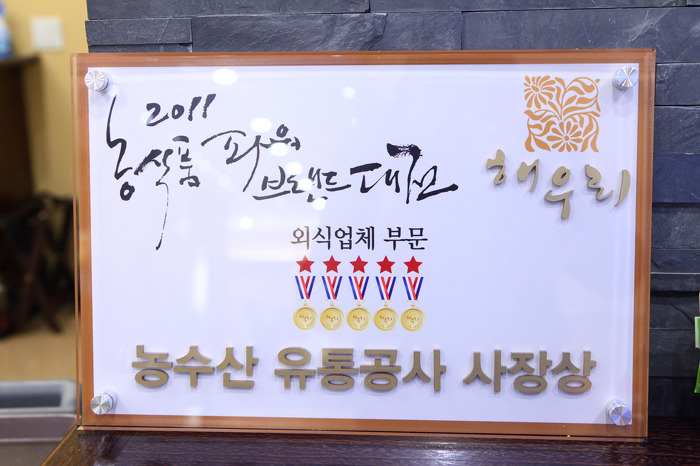 2011
농식품 파워
브랜드 대전
해우리
외식업체 부문
농수산 유통공사 사장상